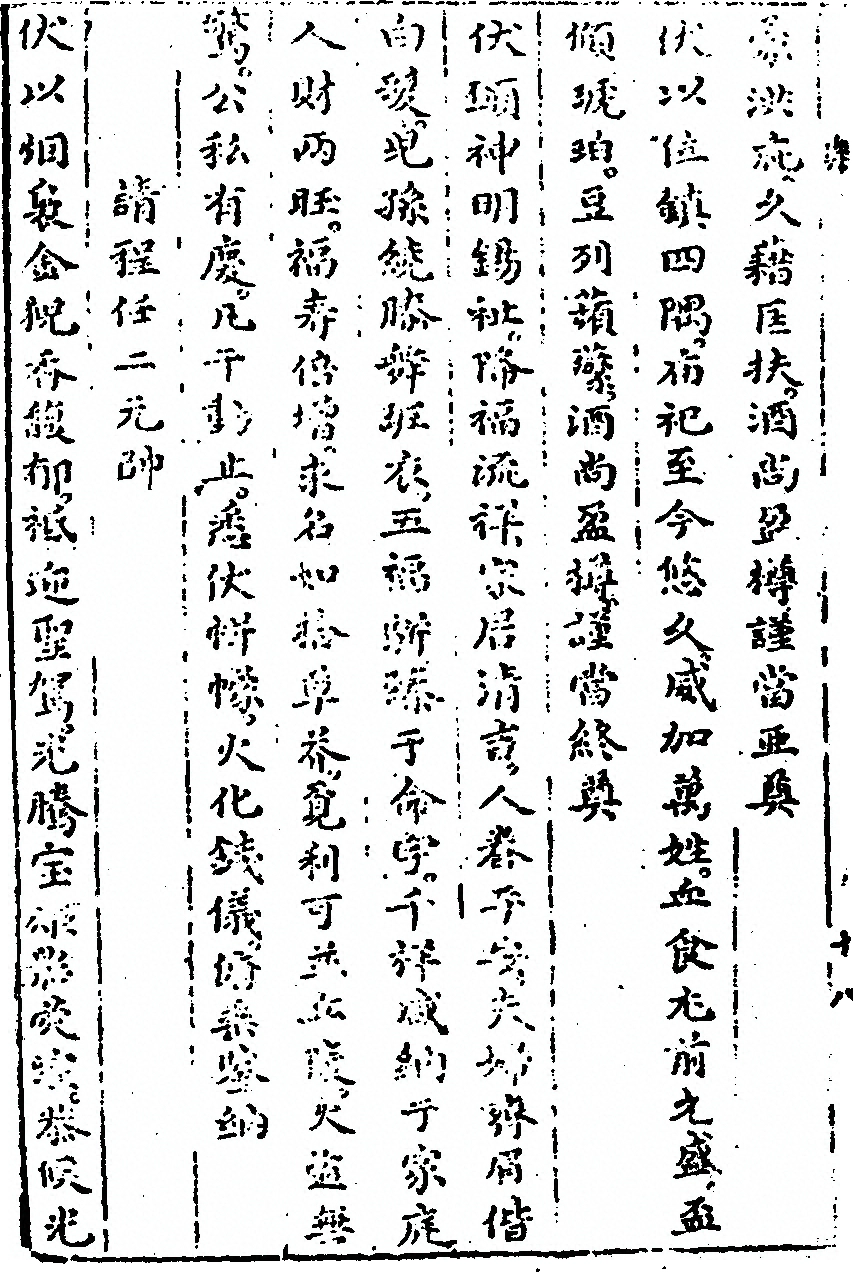 蒙洪庥。久藉匡扶。酒尚盈樽謹當亞奠
伏以位鎮四隅。廟祀至今悠久。威加萬姓。血食尤前尤盛。盃
傾琥珀。豆列蘋蘩。酒尚盈樽。謹當終奠
伏願神明錫祉。降福流祥。家居清吉。人眷平安。夫婦齊眉偕
白髮。兒孫繞膝舞班衣。五福駢臻于命宇。千祥咸納于家庭
人財兩旺。福壽倍增。求名如拾草芥。覓利可並丘陵。火盜無
驚。公私有慶。凡干動止。悉伏帡幪。火化錢儀。垂鑒納
請程任二元帥
伏以烟裊金猊香馥郁。祗迎聖駕。光騰宝。恭候光
十八